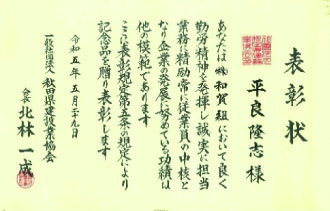 表彰状
平良隆志様
あなたは㈱和賀組において良く
勤労精神を発揮し誠実に担当
業務に精励常に従業員の中核と
なり企業発展に努めている功績は
他の模範であります
ここに表彰規定第五条の規定により
記念品を贈り表彰します
令和五年五月二十九日
一般社団法人秋田県建設業協会
会長北林一成